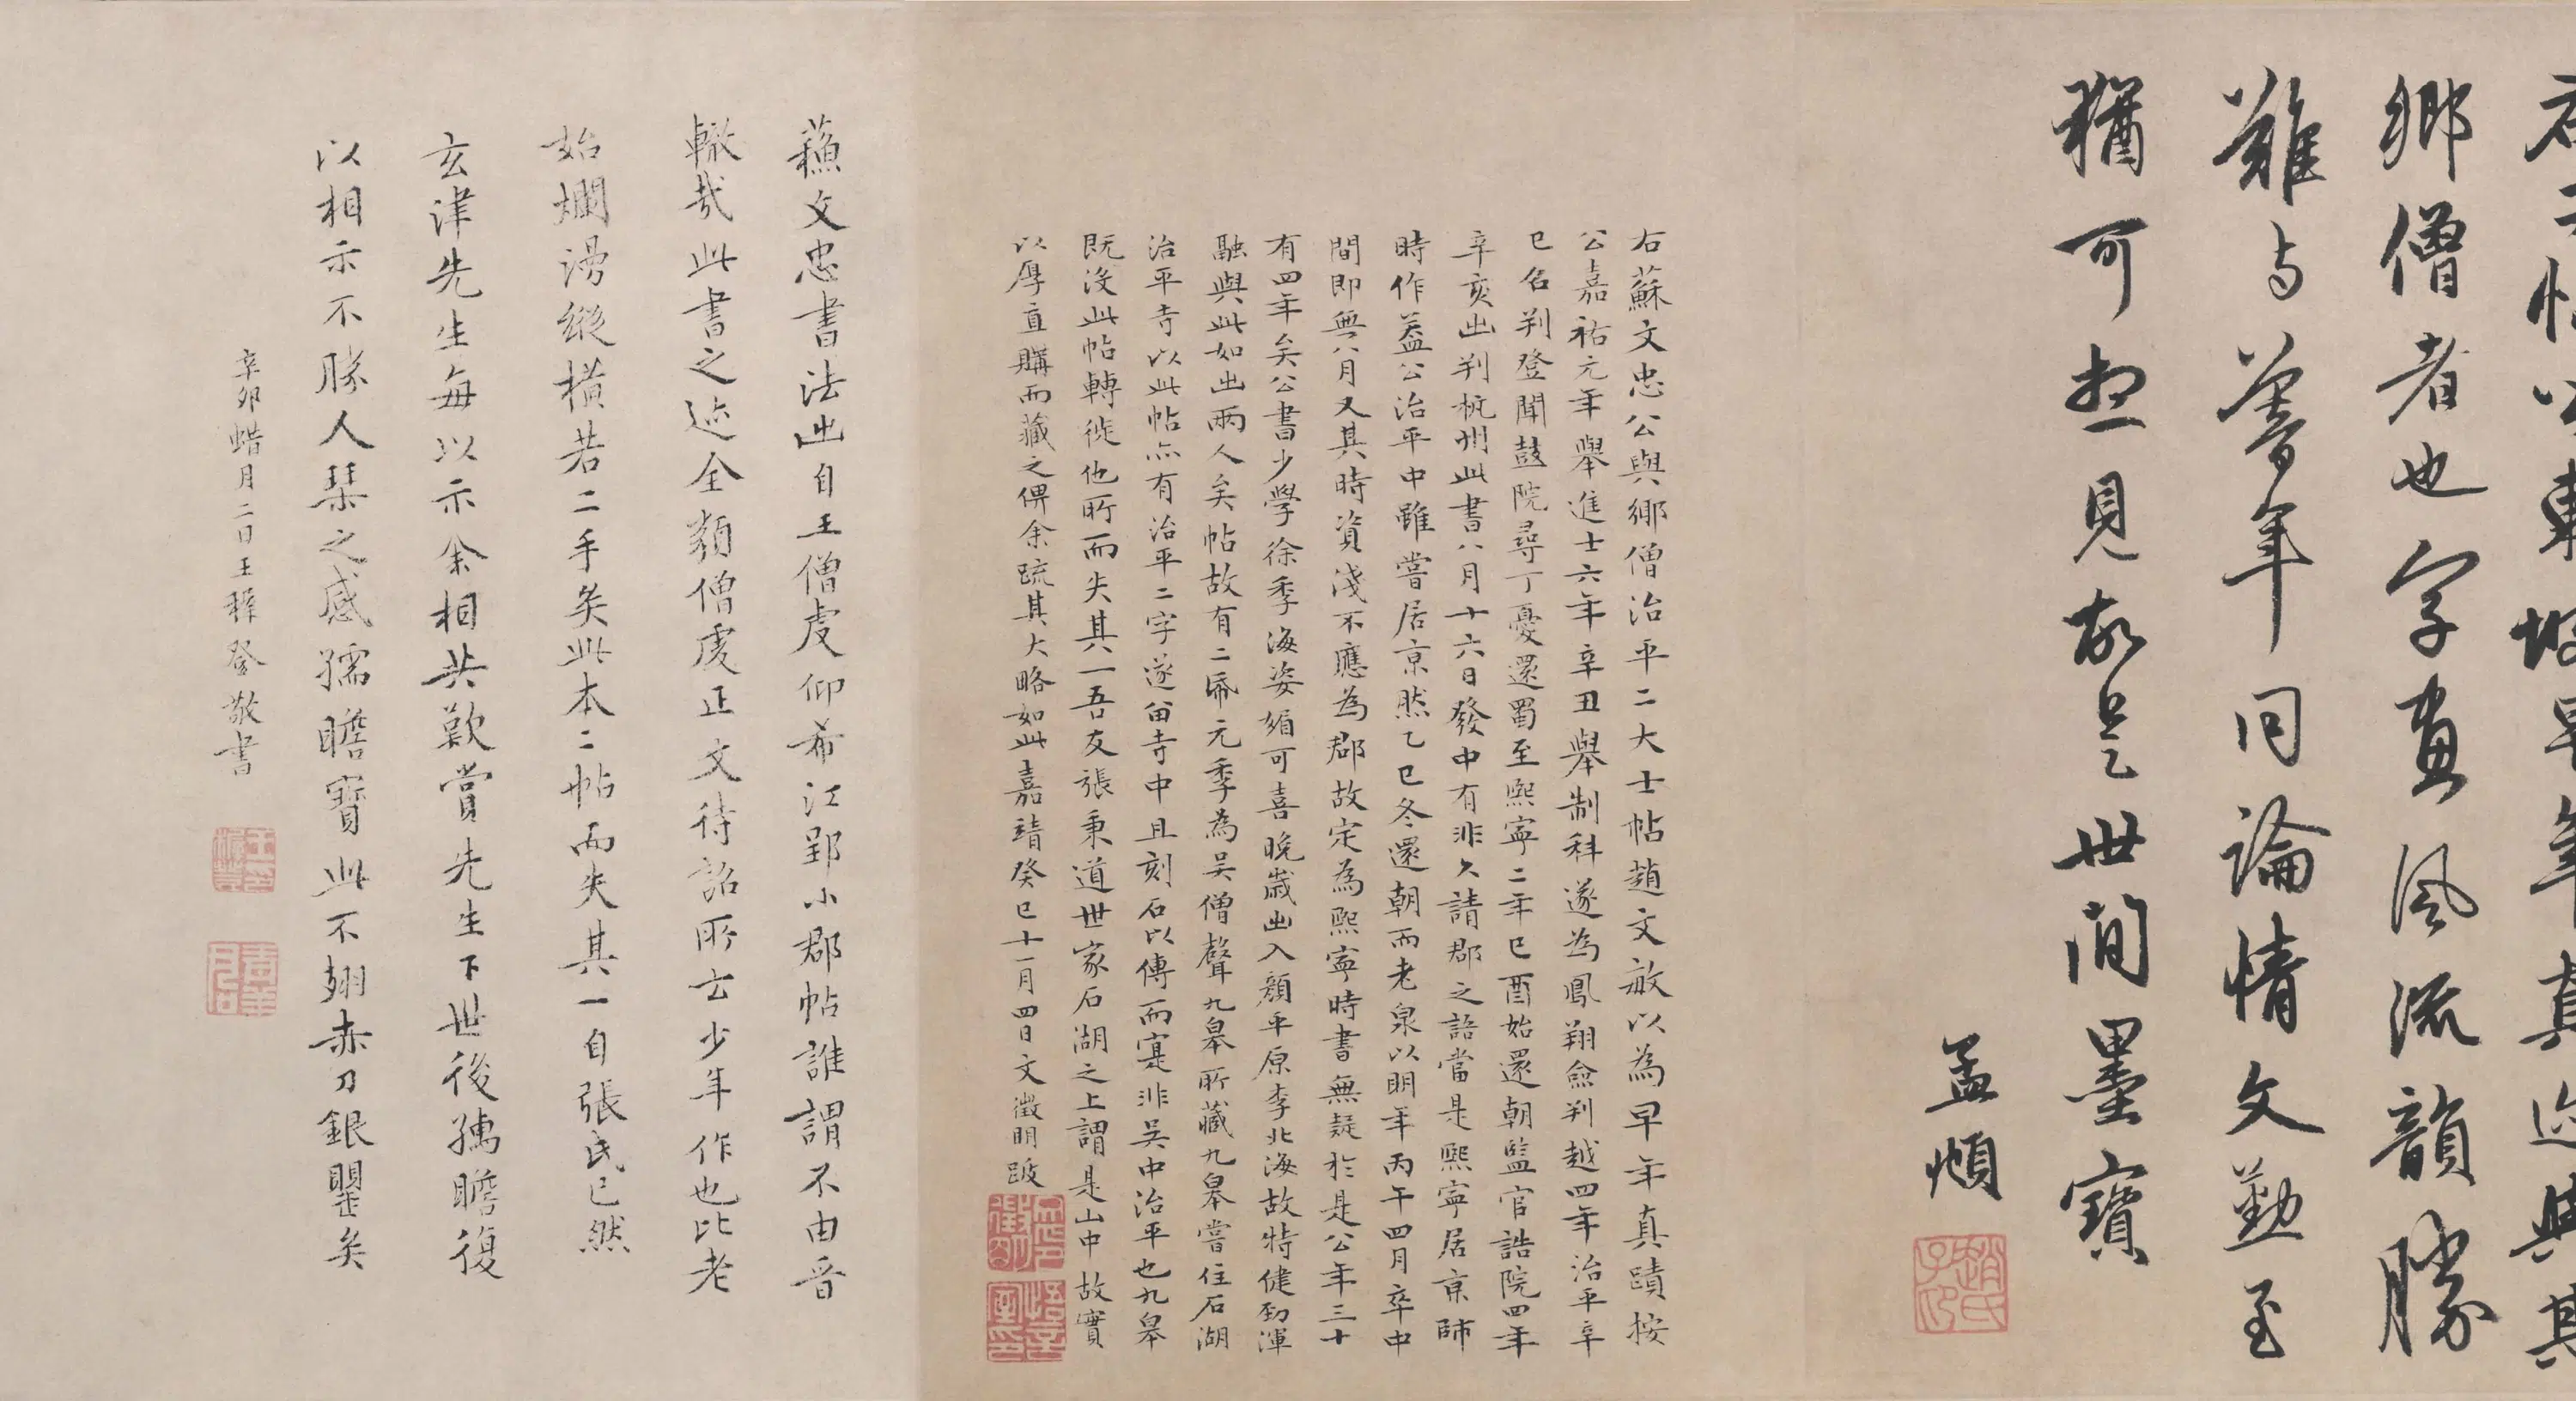 鄉僧者也字畫風流韻勝
難与暮年同論情文勤至
猶可想見故是世間墨寶
孟頫
趙氏子昂
右蘇文忠公與鄉僧治平二大士帖趙文敏以為早年真蹟按
公嘉祐元年舉進士六年辛丑舉制科遂為鳳翔僉判越四年治平辛
巳召判登聞鼓院尋丁憂還蜀至熙寧二年己酉始還朝監官誥院四年
辛亥出判杭州此書八月十六日發中有非久請郡之語當是熙寧居京師
時作蓋公治平中雖嘗居京然乙巳冬還朝而老泉以明年丙午四月卒中
間即無八月又其時資淺不應為郡故定為熙寧時書無疑於是公年三十
有四年矣公書少學徐季海姿媚可喜晚歲出入顏平原李北海故特健勁渾
融與此如出兩人矣帖故有二帋元季為吳僧聲九皋所藏九皋嘗住石湖
治平寺以此帖亦有治平二字遂留寺中且刻石以傳而寔非吳中治平也九皋
既沒此帖轉徙他所而失其一吾友張秉道世家石湖之上謂是山中故實
以厚直購而藏之俾余疏其大略如此嘉靖癸巳十一月四日文徵明跋
蘓文忠書法出自王僧虔仰希江郢小郡帖誰謂不由晉
轍哉此書之迹全類僧虔正文待詔所云少年作也比老
始爛漫縱橫若二手矣此本二帖而失其一自張氏已然
玄津先生每以示余相共歎賞先生下世後孺瞻復
以相示不勝人琹之感孺瞻寶此不翅赤刀銀甖矣
辛卯蜡月二日王穉登敬書